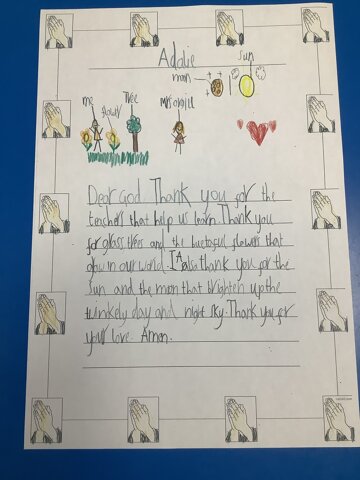 Addie
sun
moon
me
flower
Tree
Dear God Thank you for the
teachers that help us learn. Thank you
for glass trees and the buetoful flowers that
grow in our world. I also thank you for the
sun and the moon that brighten up the
twinkely day and night sky. Thank you for
your love. Amen.